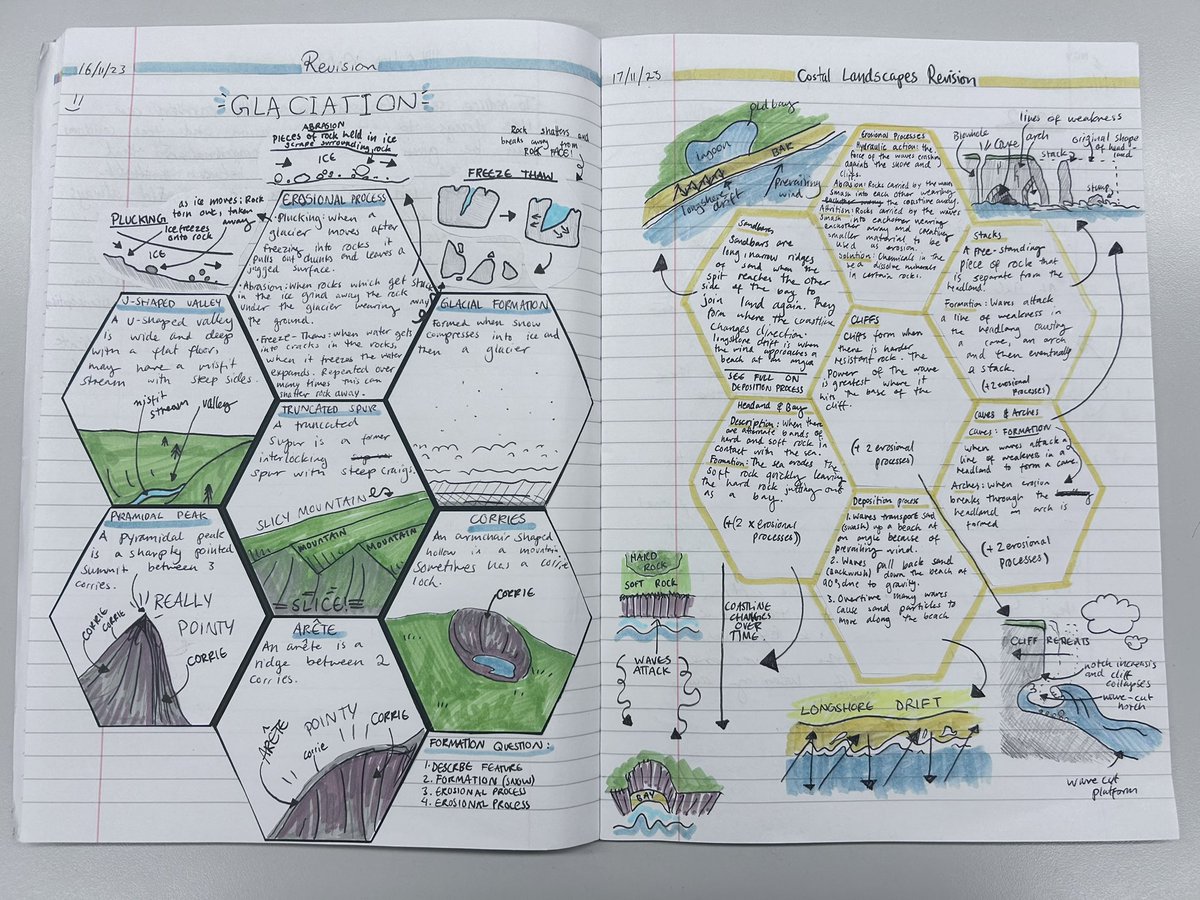 16/11/23
Revision
GLACIATION
ABRASION
PIECES OF ROCK HELD IN ICE
SCRAPE SURROUNDING ROCK
ICE
Rock shatters and
breaks away from
ROCK FACE!
FREEZE THAW
as ice moves: Rock
torn out, taken
away
PLUCKING
Ice freezes
onto rock
ICE
EROSIONAL PROCESS
Plucking: When a
glacier moves after
freezing into rocks it
pulls out chunks and leaves a
jagged surface.
Abrasion: When rocks which get stuck
in the ice grind away the rock
under the glacier wearing away
the ground.
Freeze-Thaw: when water gets
into cracks in the rocks,
when it freezes the water
expands. Repeated over
many times this can
shatter rock away.
U-SHAPED VALLEY
A U-shaped valley
is wide and deep
with a flat floor,
may have a misfit
stream with steep sides.
misfit
stream
valley
GLACIAL FORMATION
Formed when snow
compresses into ice and
then a glacier
TRUNCATED SPUR
A truncated
spur is a former
interlocking
spur with steep craigs.
SLICY MOUNTAIN
MOUNTAIN
MOUNTAIN
SLICE!
PYRAMIDAL PEAK
A Pyramidal peak
is a sharply pointed
summit between 3
corries.
REALLY
POINTY
CORRIE
CORRIE
CORRIE
CORRIES
An armchair shaped
hollow in a mountain.
Sometimes has a corrie
loch.
CORRIE
ARÊTE
An arête is a
ridge between 2
corries.
ARÊTE
POINTY
corrie
CORRIE
FORMATION QUESTION:
1. DESCRIBE FEATURE
2. FORMATION (SNOW)
3. EROSIONAL PROCESS
4. EROSIONAL PROCESS
17/11/23
Costal Landscapes Revision
old bay
lagoon
BAR
longshore
drift
prevailing
wind
Erosional Processes
Hydraulic action: the
force of the waves crashing
against the shore and
cliffs.
Abrasion: Rocks carried by the waves
smash into each other wearing
the coastline away.
Attrition: Rocks carried by the waves
smash into eachother wearing
eachother away and creating
smaller material to be
used as erosion.
Solution: Chemicals in the
sea dissolve minerals
in certain rocks.
lines of weakness
Blowhole
Cave
arch
stack
original shape
of headland
stump
Sandbars
Sandbars are
long narrow ridges
of sand when the
spit reaches the other
side of the bay to
join land again. They
form where the coastline
changes direction.
longshore drift is when
the wind approaches a
beach at an angle
SEE FULL ON
DEPOSITION PROCESS
Stacks
A free-standing
piece of rock that
is separate from the
headland.
Formation: Waves attack
a line of weakness in
the headland causing
a cave, an arch
and then eventually
a stack.
(+2 erosional
processes)
CLIFFS
Cliffs form when
there is harder
resistant rock. The
Power of the wave
is greatest where it
hits the base of the
cliff.
(+ 2 erosional
processes)
Headland & Bay
Description: When there
are alternate bands of
hard and soft rock in
contact with the sea.
Formation: The sea erodes the
soft rock quickly leaving
the hard rock jutting out
as a bay.
(+(2 x erosional
processes))
Caves & Arches
Caves: FORMATION
When waves attack a
line of weakness in a
headland to form a cave.
Arches: When erosion
breaks through the
headland an arch is
formed
(+ 2 erosional
processes)
Deposition process
1. Waves transport sand
(swash) up a beach at
an angle because of
prevailing wind.
2. Waves pull back sand
(backwash) down the beach at
90° due to gravity.
3. Overtime many waves
cause sand particles to
move along the beach
HARD
ROCK
SOFT ROCK
WAVES
ATTACK
COASTLINE
CHANGES
OVER
TIME.
BAY
LONGSHORE DRIFT
CLIFF RETREATS
notch increases
and cliff
collapses
wave-cut
notch
wave cut
platform